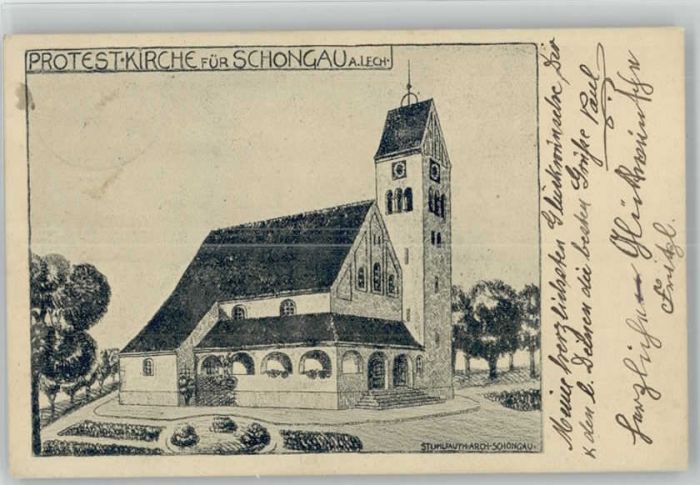 PROTEST·KIRCHE FÜR SCHONGAU A. LECH·
STUHLFAUTH·ARCH·SCHONGAU·
Meine herzlichsten Glückwünsche, Dir
u. den l. Deinen die besten Grüße Paul
Herzlichen Glückwunsch
Fritzl.